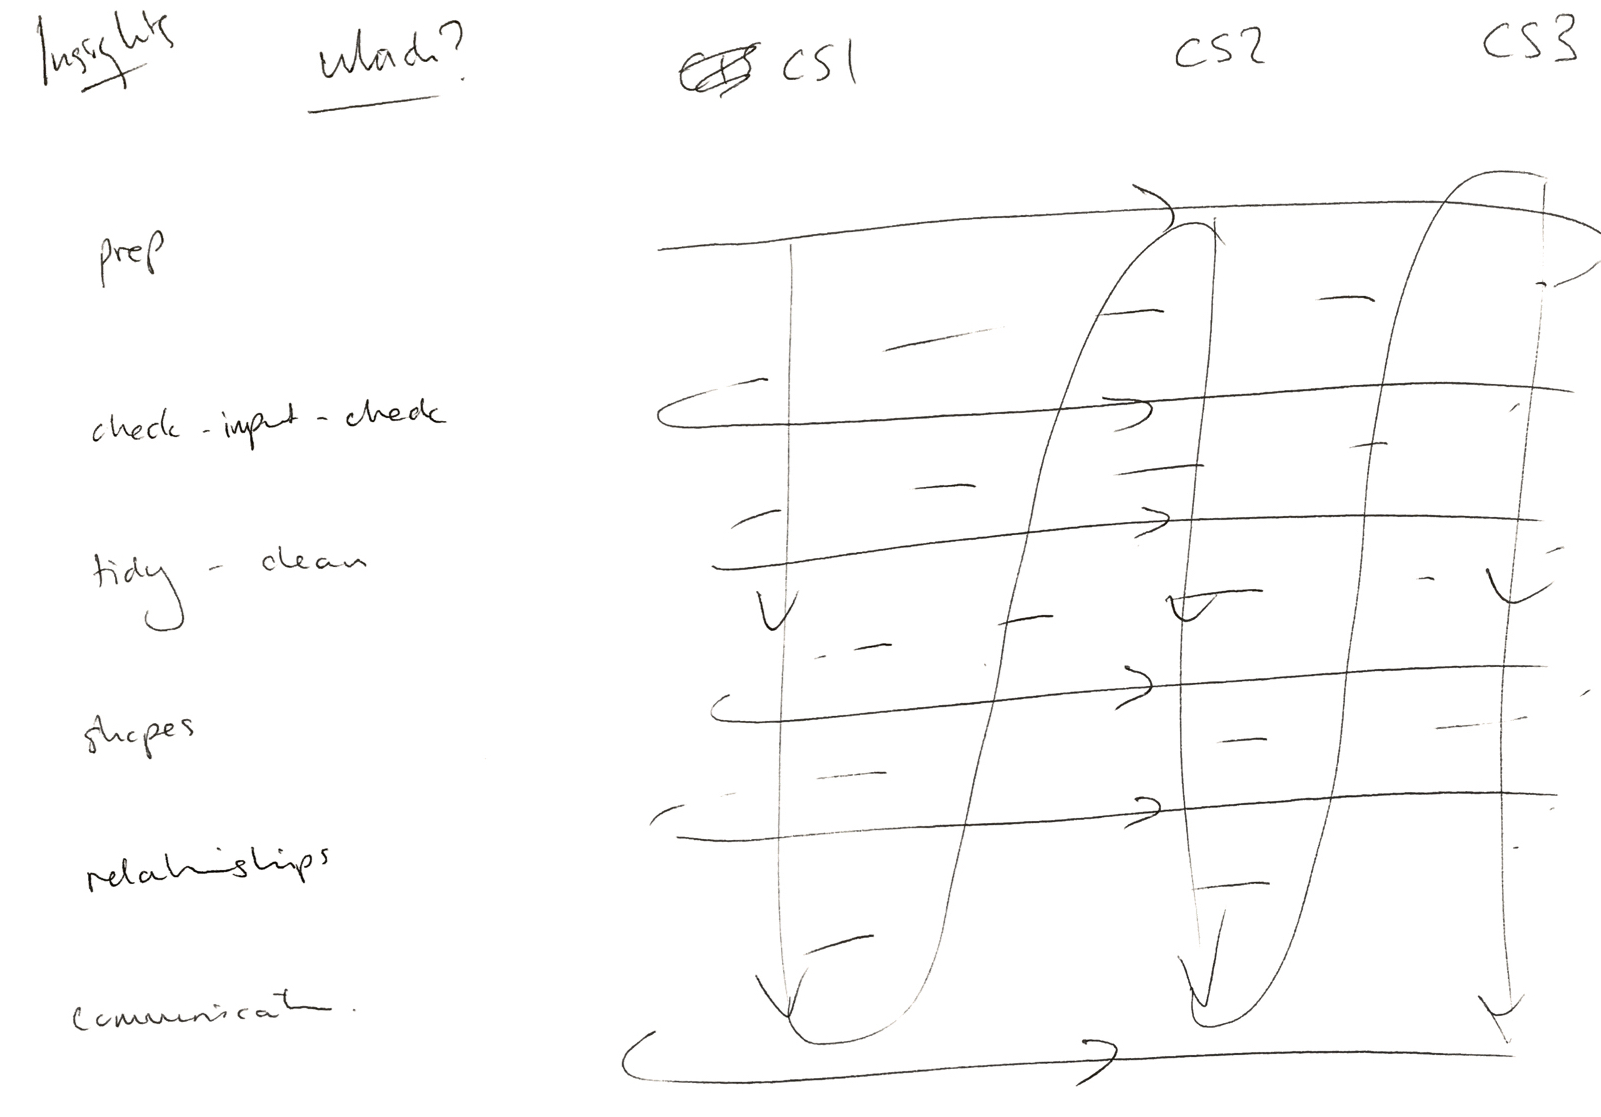 Insights which? CS1 CS2 CS3
prep
check - input - check
tidy - clean
shapes
relationships
communicate.